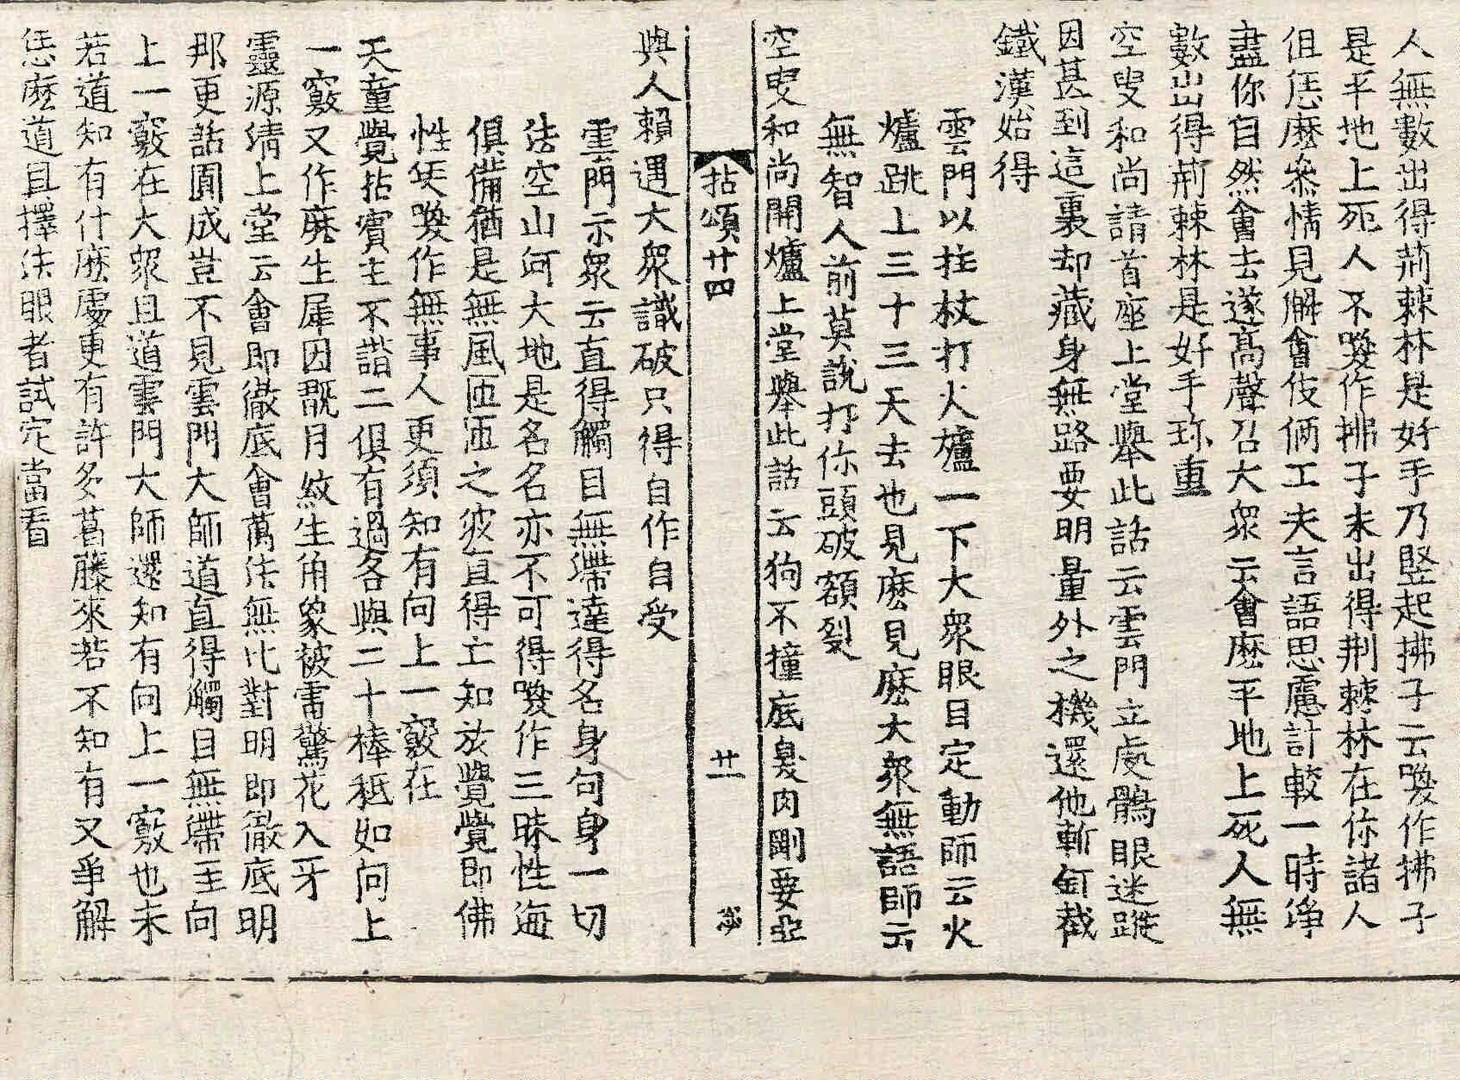 人無數出得荊棘林是好手乃竪起拂子云喚作拂子
是平地上死人不喚作拂子未出得荆棘林在你諸人
但恁麽叅情見解會伎倆工夫言語思慮計較一時竫
盡你自然會去遂高聲召大衆云會麽平地上死人無
數出得荊棘林是好手珎重
空叟和尚請首座上堂舉此話云雲門立處鶻眼迷蹤
因甚到這裏却藏身無路要明量外之機還他斬釘截
鐵漢始得
雲門以拄杖打火爐一下大衆眼目定動師云火
爐跳上三十三天去也見麽見麽大衆無語師云
無智人前莫說打你頭破額裂
空叟和尚開爐上堂舉此話云狗不撞底臭肉剛要亞
拈頌廿四
廿一
與人賴遇大衆識破只得自作自受
雲門示衆云直得觸目無滯達得名身句身一切
法空山河大地是名名亦不可得喚作三昧性海
俱備猶是無風匝匝之波直得亡知於覺覺即佛
性矣喚作無事人更須知有向上一竅在
天童覺拈賓主不諧二俱有過各與二十棒秪如向上
一竅又作麽生犀因翫月紋生角象被雷驚花入牙
靈源淸上堂云會即徹底會萬法無比對明即徹底明
那更話圓成豈不見雲門大師道直得觸目無滯至向
上一竅在大衆且道雲門大師還知有向上一竅也未
若道知有什麽處更有許多葛藤來若不知有又爭解
恁麽道且擇法眼者試定當看